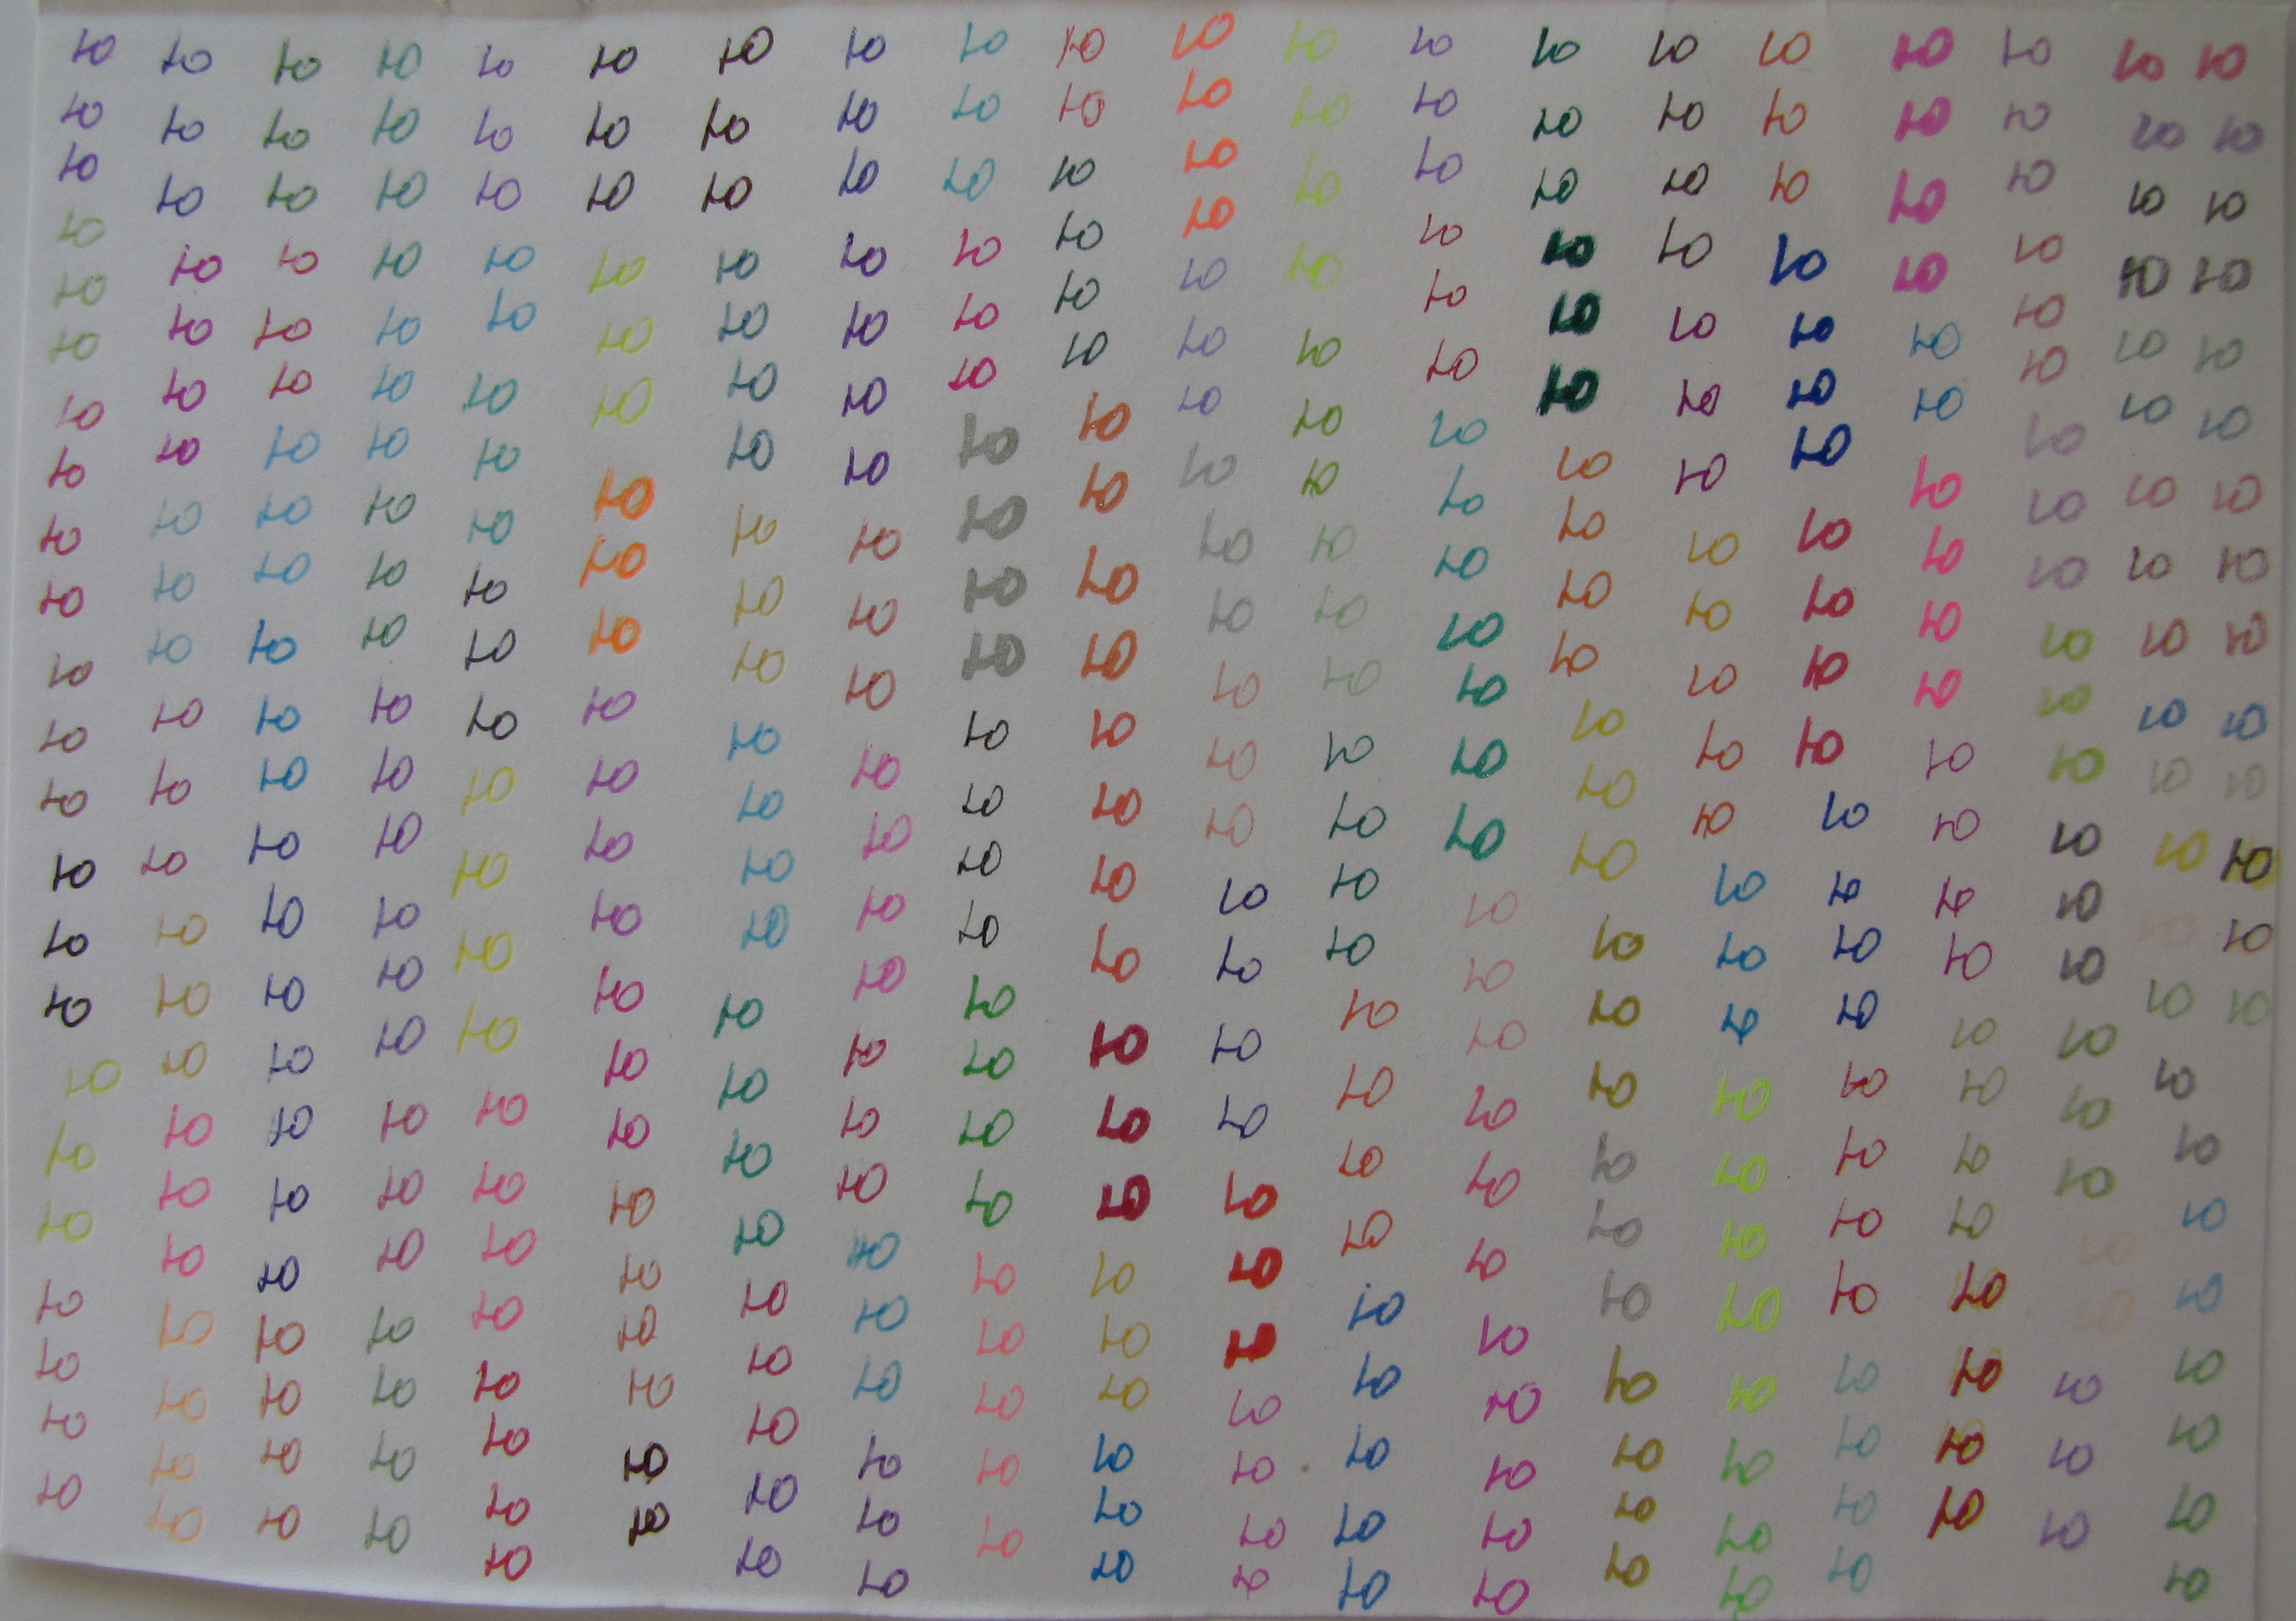 ю ю ю ю ю ю ю ю ю ю ю ю ю ю ю ю ю ю ю ю
ю ю ю ю ю ю ю ю ю ю ю ю ю ю ю ю ю ю ю ю
ю ю ю ю ю ю ю ю ю ю ю ю ю ю ю ю ю ю ю ю
ю ю ю ю ю ю ю ю ю ю ю ю ю ю ю ю ю ю ю ю
ю ю ю ю ю ю ю ю ю ю ю ю ю ю ю ю ю ю ю ю
ю ю ю ю ю ю ю ю ю ю ю ю ю ю ю ю ю ю ю ю
ю ю ю ю ю ю ю ю ю ю ю ю ю ю ю ю ю ю ю ю
ю ю ю ю ю ю ю ю ю ю ю ю ю ю ю ю ю ю ю ю
ю ю ю ю ю ю ю ю ю ю ю ю ю ю ю ю ю ю ю ю
ю ю ю ю ю ю ю ю ю ю ю ю ю ю ю ю ю ю ю ю
ю ю ю ю ю ю ю ю ю ю ю ю ю ю ю ю ю ю ю ю
ю ю ю ю ю ю ю ю ю ю ю ю ю ю ю ю ю ю ю ю
ю ю ю ю ю ю ю ю ю ю ю ю ю ю ю ю ю ю ю ю
ю ю ю ю ю ю ю ю ю ю ю ю ю ю ю ю ю ю ю ю
ю ю ю ю ю ю ю ю ю ю ю ю ю ю ю ю ю ю ю
ю ю ю ю ю ю ю ю ю ю ю ю ю ю ю ю ю ю ю
ю ю ю ю ю ю ю ю ю ю ю ю ю ю ю ю ю ю ю
ю ю ю ю ю ю ю ю ю ю ю ю ю ю ю ю ю ю ю
ю ю ю ю ю ю ю ю ю ю ю ю ю ю ю ю ю ю ю
ю ю ю ю ю ю ю ю ю ю ю ю ю ю ю ю ю ю ю
ю ю ю ю ю ю ю ю ю ю ю ю ю ю ю ю ю ю ю
ю ю ю ю ю ю ю ю ю ю ю ю ю ю ю ю ю ю ю
ю ю ю ю ю ю ю ю ю ю ю ю ю ю ю ю ю ю